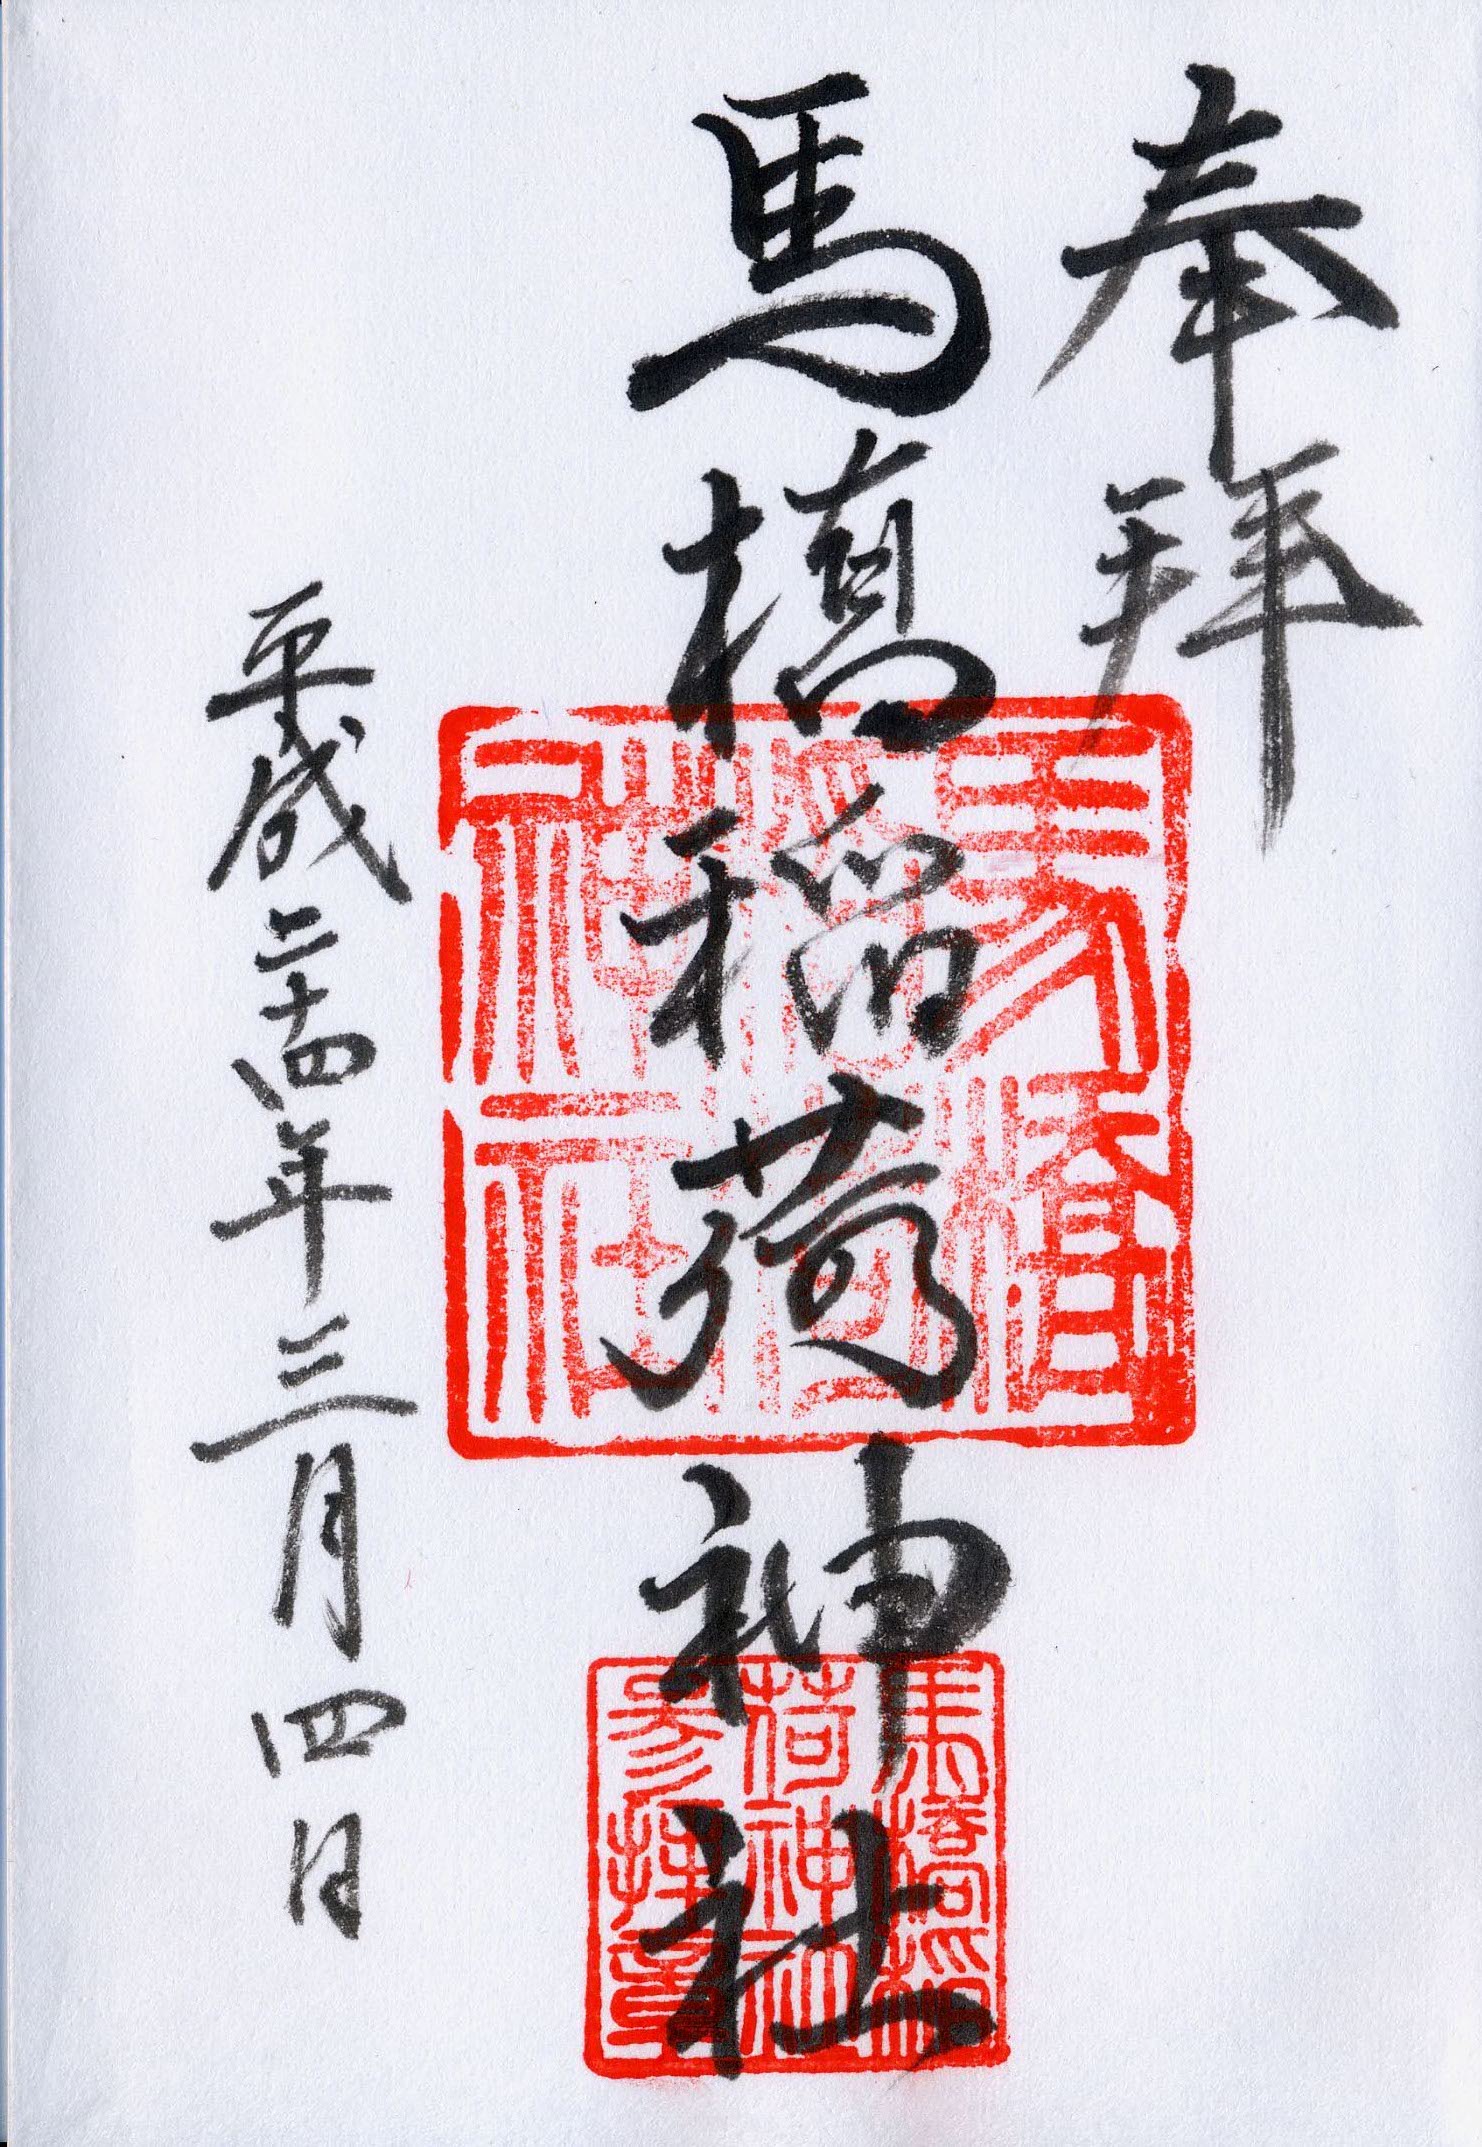 奉拝
馬橋稲荷神社
平成二十四年三月四日
馬橋稲荷神社
馬橋稲荷神社参拝章